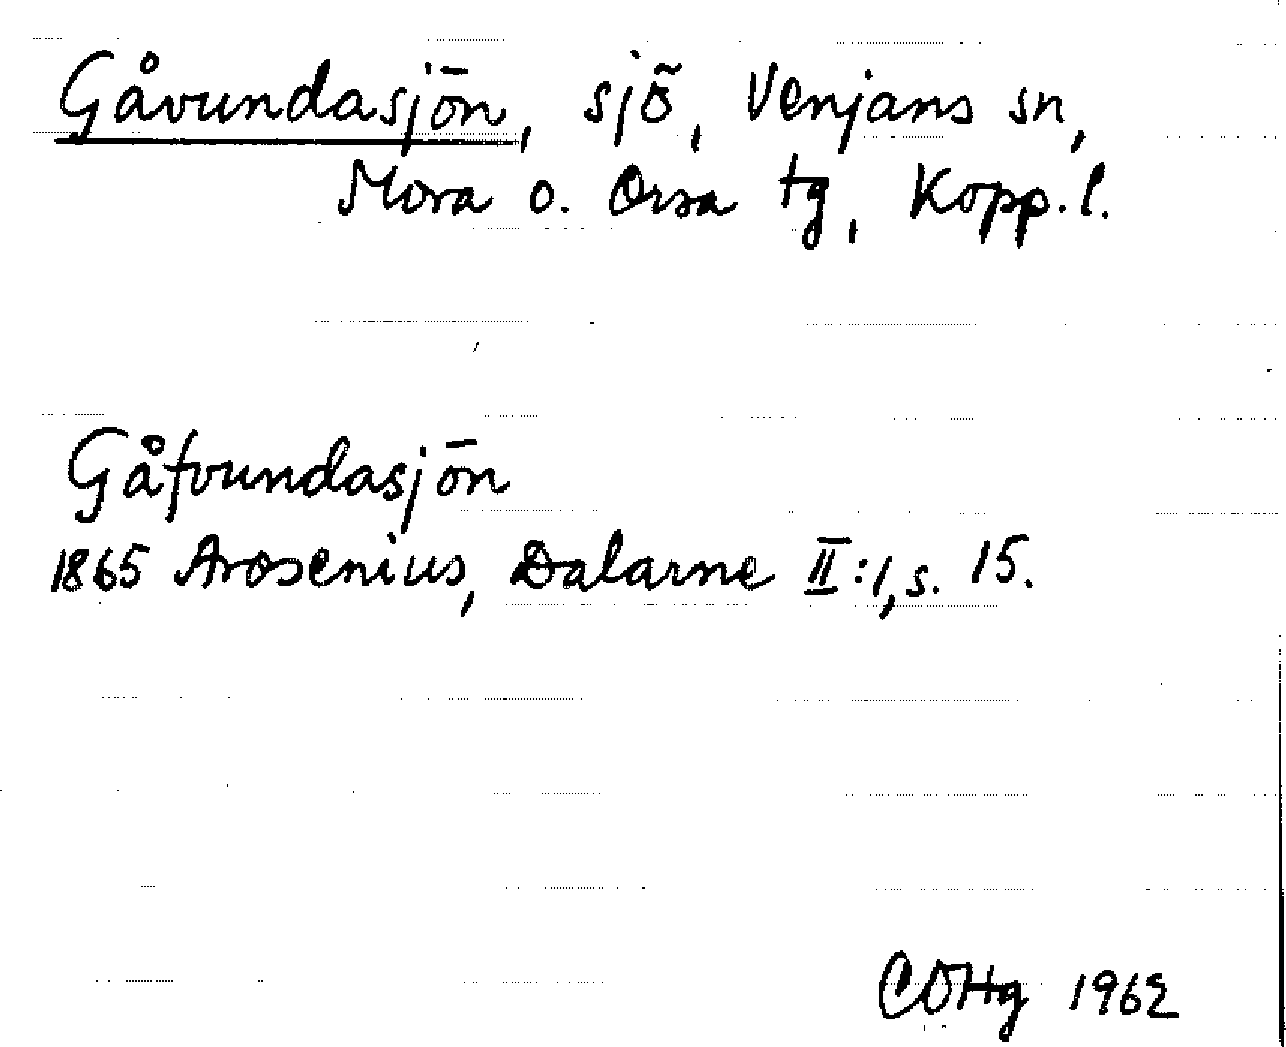 Gåvundasjön, sjö, Venjans sn,
Mora o. Orsa tg, Kopp. l.
Gåfvundasjön
1865 Arosenius, Dalarne II:1, s. 15.
CDHg 1962